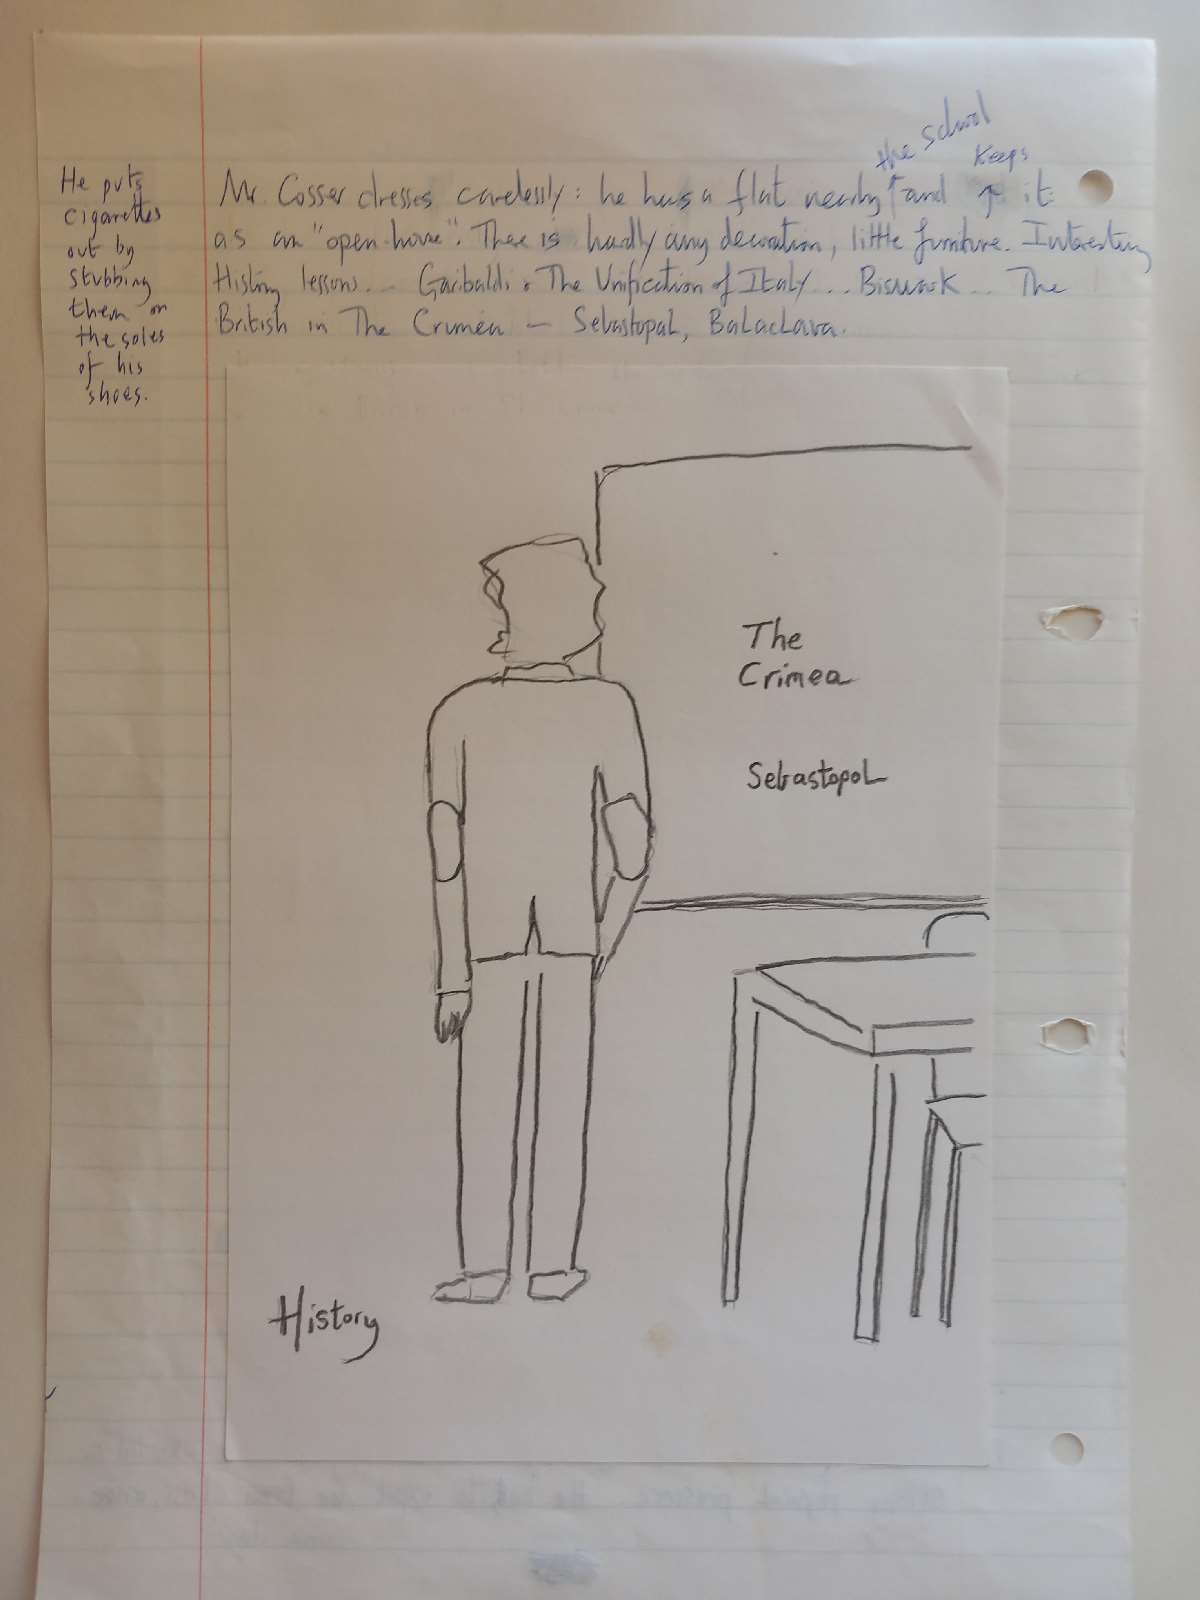 the school
keeps
Mr. Cosser dresses carelessly: he has a flat nearby and it
as an "open house". There is hardly any decoration, little furniture. Interesting
History lessons... Garibaldi & The Unification of Italy... Bismark... The
British in The Crimea — Sebastopol, Balaclava.
He puts
cigarettes
out by
stubbing
them on
the soles
of his
shoes.
The
Crimea
Sebastopol
History